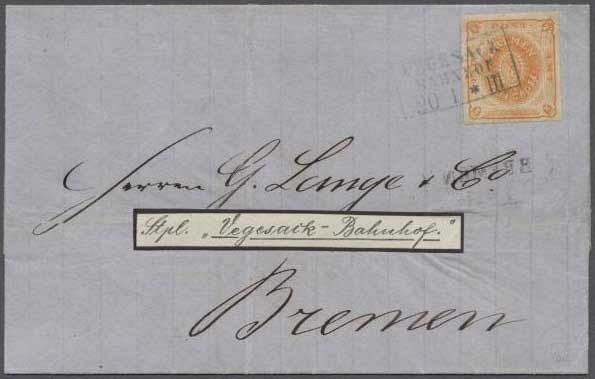 VEGESACK
BAHNHOF
20 1 * III
Herren G. Lange & Co
Stpl. „Vegesack-Bahnhof."
Bremen